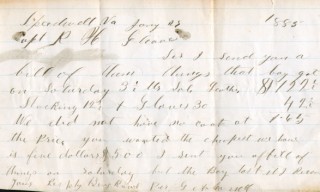 Speedwell Va Jany 27 1885
Capt R H Gleaves
Sir I send you a
bill of them things that boy got
on Saturday 3 lb Sole Leather
Stocking 12½ 1 Gloves 30 42½
We did not have no coat at 1.65
the Price you wanted the cheapest we have
is five dollars $5.00 I sent you a bill of
things on Saturday but the Boy lost it I Recon
Yours